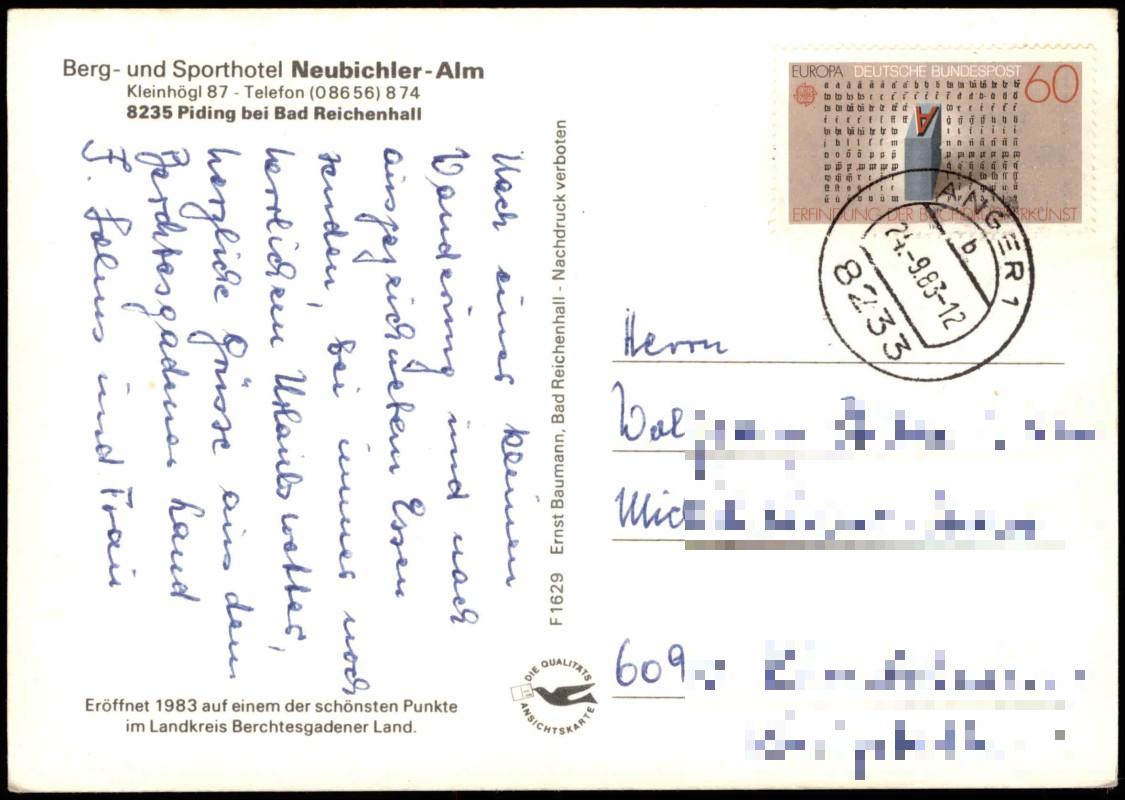 Berg- und Sporthotel Neubichler-Alm
Kleinhögl 87 - Telefon (08656) 874
8235 Piding bei Bad Reichenhall
Nach einer kleinen
Wanderung und nach
ausgezeichneten Essen
senden, bei immer noch
herrlichen Urlaubswetter,
herzliche Grüsse aus dem
Berchtesgadener Land
F. und Frau
Eröffnet 1983 auf einem der schönsten Punkte
im Landkreis Berchtesgadener Land.
F1629 Ernst Baumann, Bad Reichenhall - Nachdruck verboten
DIE QUALITÄTS
ANSICHTSKARTE
EUROPA DEUTSCHE BUNDESPOST 60
A
ERFINDUNG DER BUCHDRUCKERKUNST
ANGER 1
b
-9.83-12
8233
Herrn
Wol
Mic
609